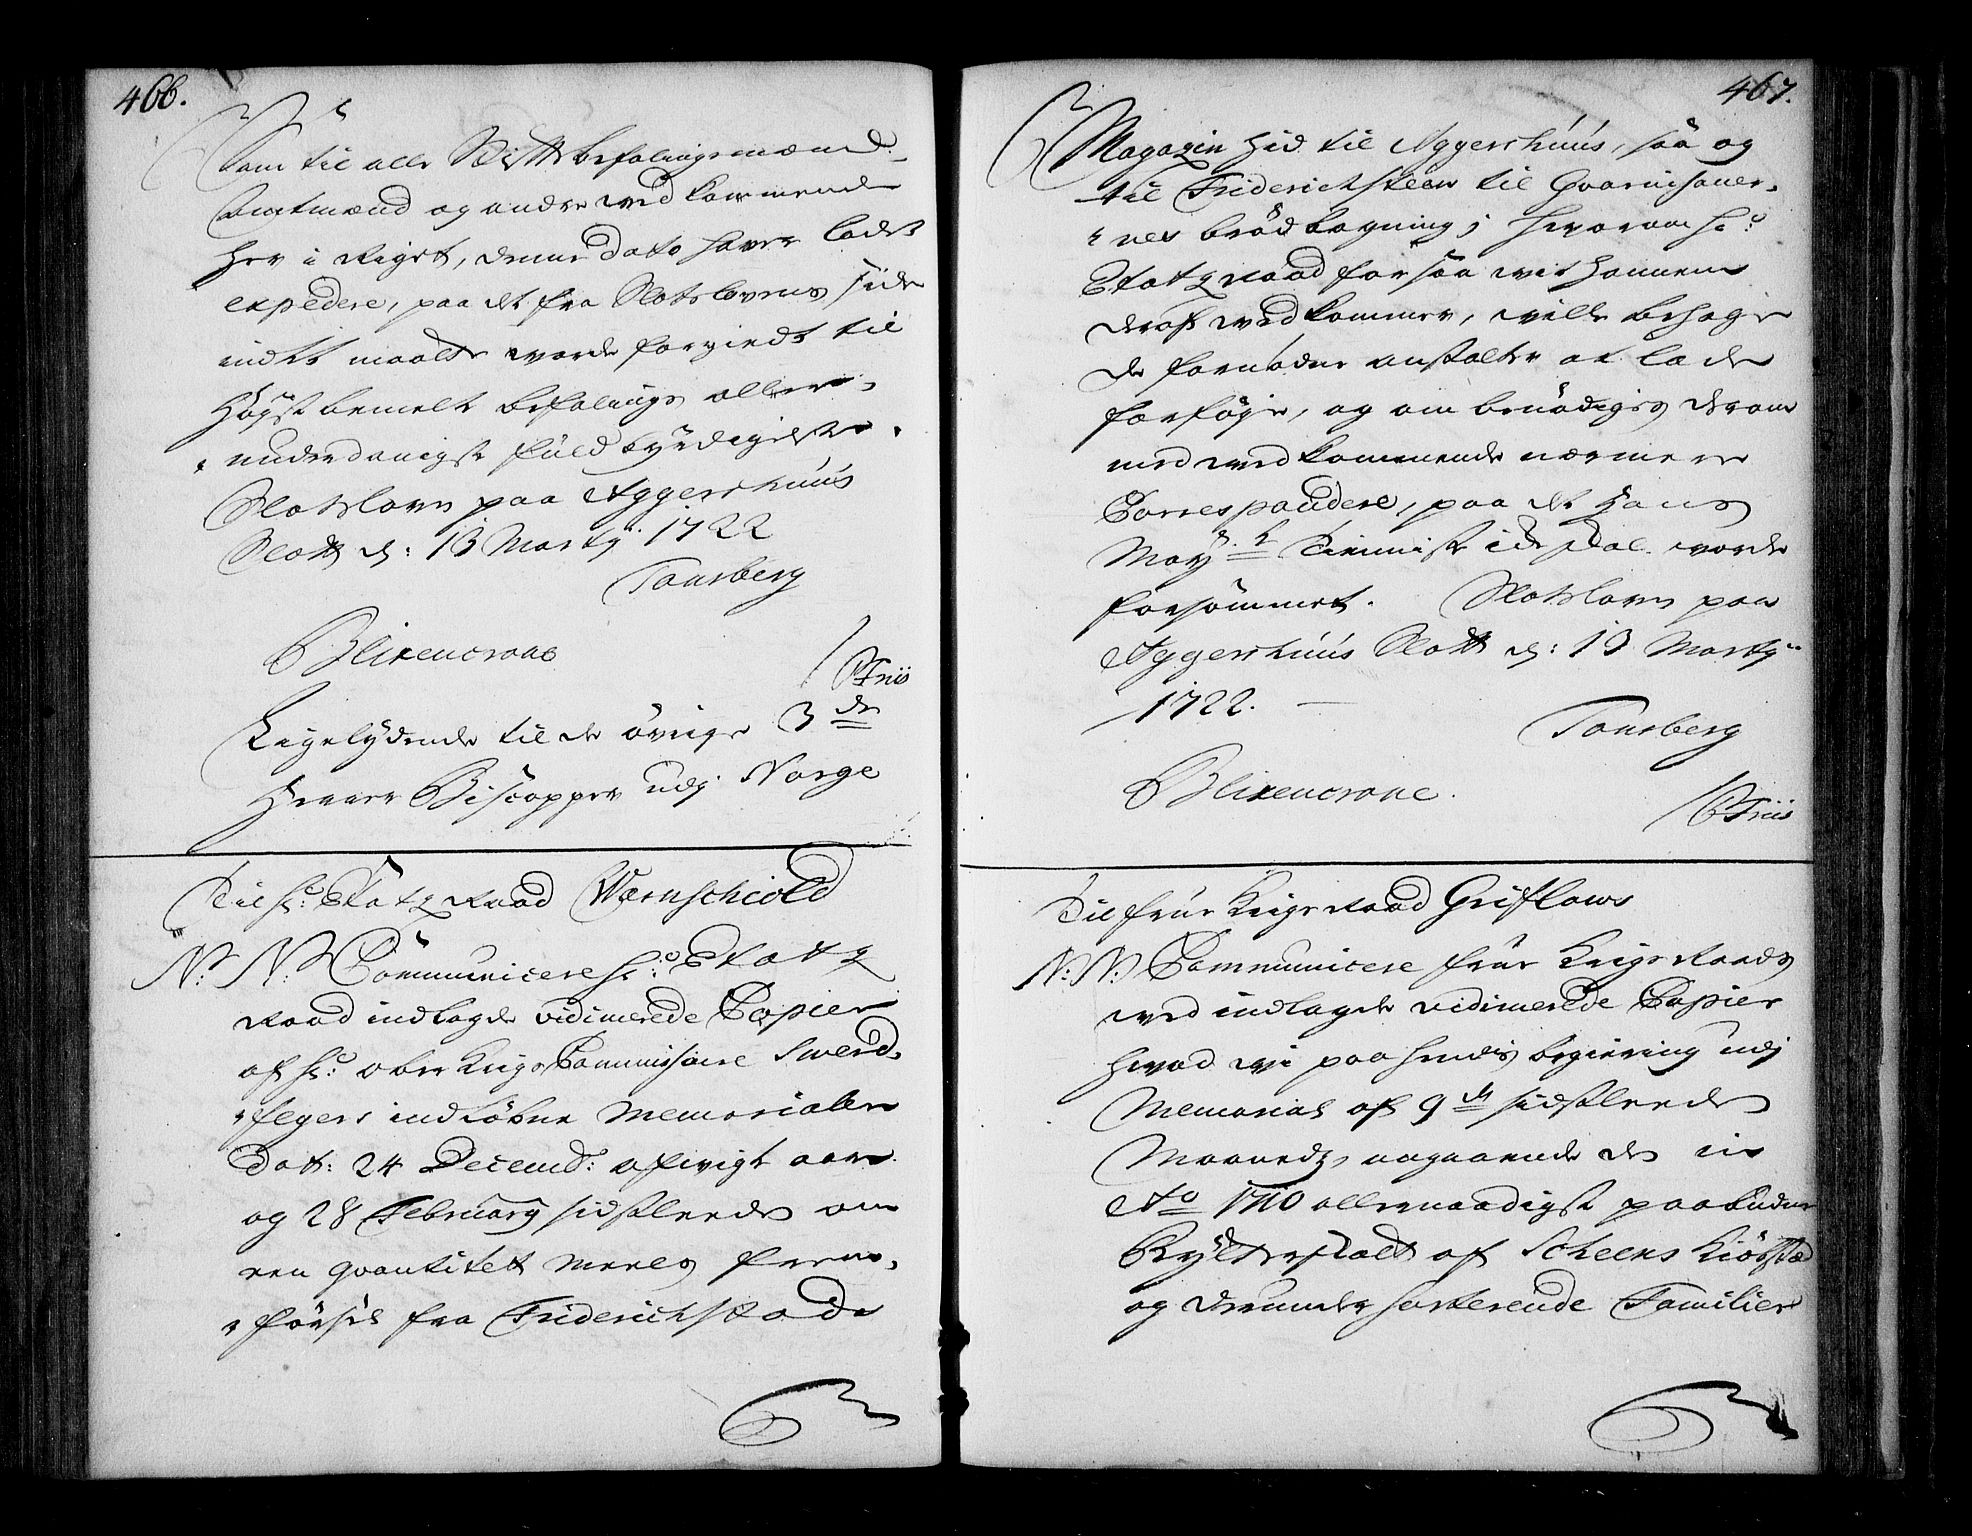 466.
Som til alle Stiftbefalingsmænd
Amtmænd og andre vedkommende
her i Riget, denne Dato haver ladet
expedere, paa det fra Slotslovens side
indtet maatte vorde forsiundt til
Høystbemelte befalings aller-
underdanigste fuldbyrdigelse.
Slotsloven paa Aggershuus
Slott d: 13 Marty 1722
Tonsberg
Blixencrone
Friis
Ligelydende til de øvrige 3de
Herrer Biscopper udj Norge
Til Hr: Etatz Raad Wernschiold
N: N: Communicere Hr: Etatz
Raad indlagde vidimerede Copier
af Hr: Ober Krigs Commissaire Swerd-
fegers indkobne Memorialer
Dat: 24 Decemb: afvigt aar
og 28 February sidstleeden om
een qvantitet Meels frem-
førsel fra Friderichstads
467.
Magazin hid til Aggershuus, saa og
til Friderichsteen til Gvarnisoner-
nes brød bagning; hvorom Hr:
Etatz Raad forsaavit hannem
deraf vedkommer, ville behage
de fornødne anstalter at lade
forføje, og om benødiges derom
med vedkommende nærmere
Correspondere, paa det Hans
May:ts tienniste ide skal vorde
forsømmet. Slotsloven paa
Aggershuus Slott d: 13 Marty
1722.
Tonsberg
Blixencrone.
Friis
Til Frue Krigs Raad Griflows
N: N: Communicere Frue Krigs Raads
ved indlagde vidimerede Copier
hvad vi paa hendes begiering udj
Memorial af 9de sidstleeden
Maaneds, angaaende den in
Ao 1710 allernaadigst paabudne
Rytterskatt af Scheens Kiøbstæd
og derunder sorterende Familier